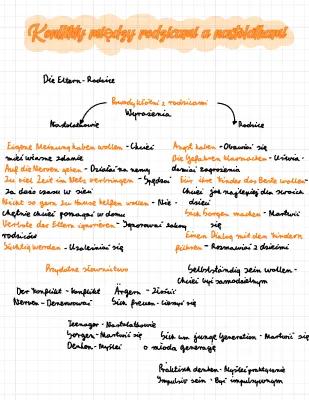 Konflikty między rodzicami a nastolatkami
Die Eltern - Rodzice
Powody kłótni z rodzicami
Wyrażenia
Nastolatkowie
Rodzice
Eigene Meinung haben wollen - Chcieć
mieć własne zdanie
Auf die Nerven gehen - Działać na nerwy
Zu viel Zeit im Netz verbringen - Spędzać
za dużo czasu w sieci
Nicht so gern zu Hause helfen wollen - Nie
chętnie chcieć pomagać w domu
Verbote der Eltern ignorieren - Ignorować zakazy
rodziców
Süchtig werden - Uzależnić się
Angst haben - Obawiać się
Die Gefahren
zagrożenia
Für ihre Kinder das Beste wollen -
Chcieć jak najlepiej dla swoich
dzieci
Sich Sorgen machen - Martwić
się
Einen Dialog mit den Kindern
führen - Rozmawiać z dziećmi
Przydatne słownictwo
Selbstständig sein wollen -
Chcieć być samodzielnym
Der Konflikt - Konflikt
Nerven - Denerwować
Ärgern - Złościć
Sich freuen - Cieszyć się
Teenager - Nastolatkowie
Sorgen - Martwić się
Denken - Myśleć
Sich um junge Generation - Martwić się
o młodą generację
Praktisch denken - Myśleć praktycznie
Impulsiv sein - Być impulsywnym